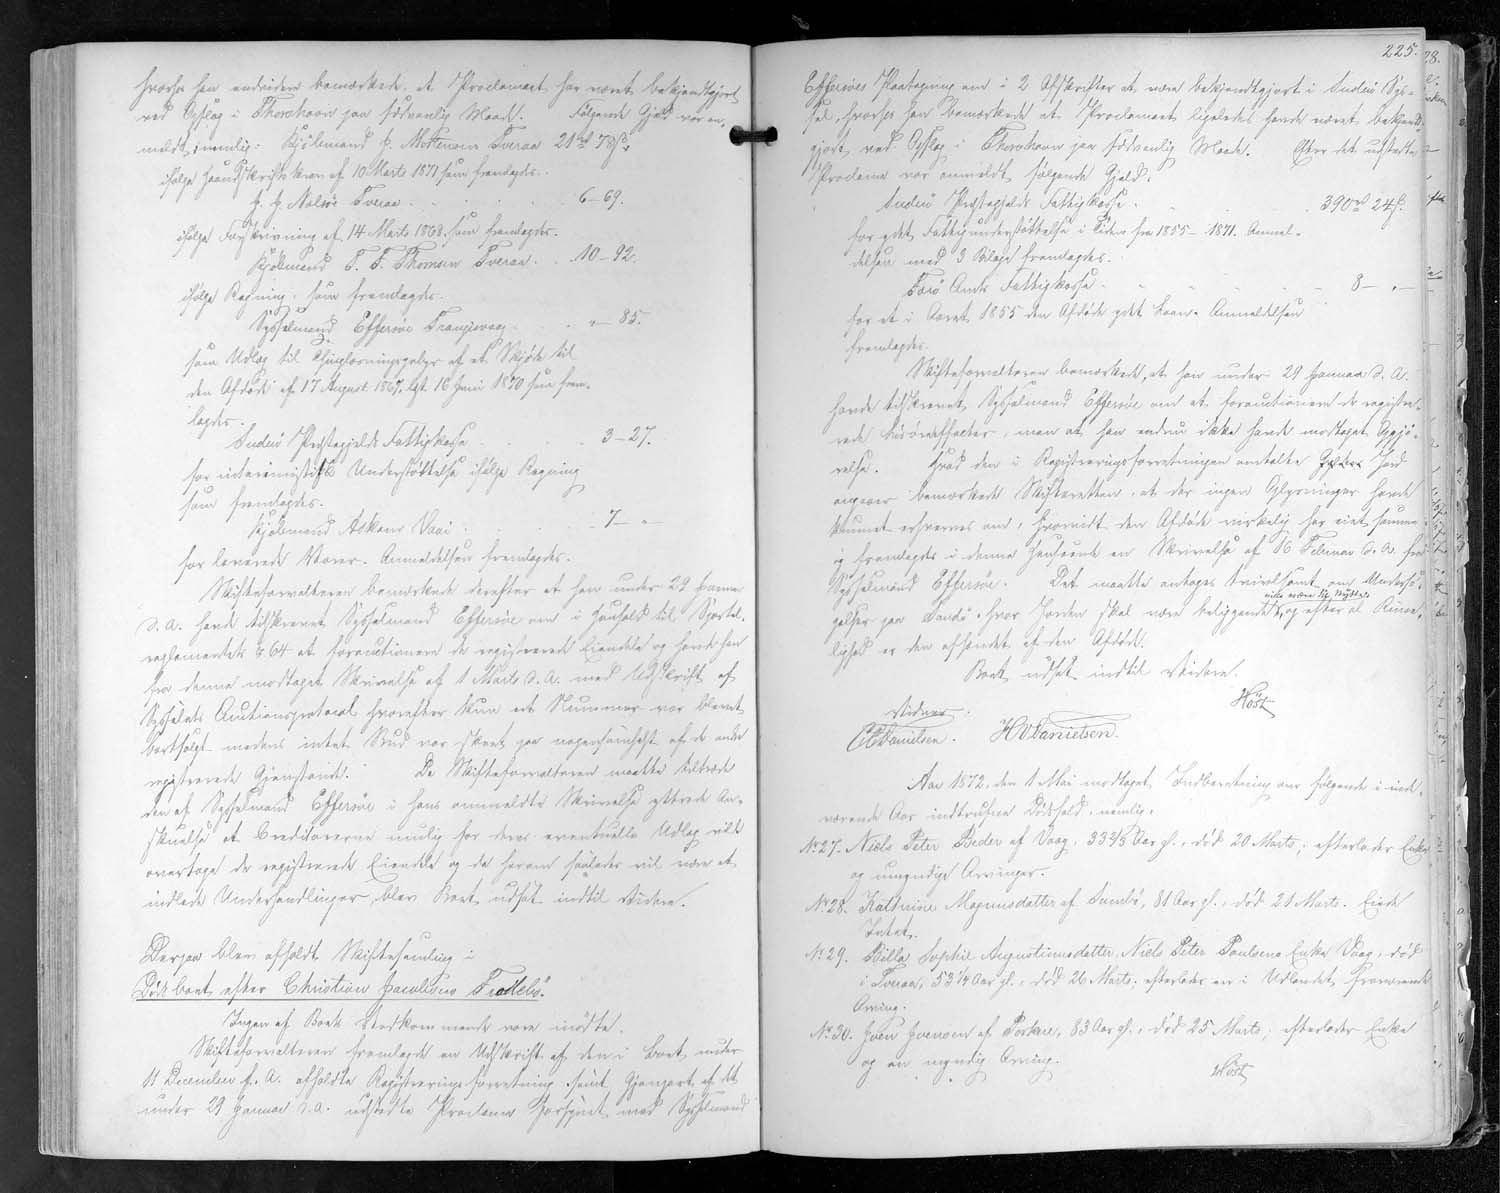 hvorhos han endvidere bemærkede, at Proclamaet har været bekjendtgjort
ved Opslag i Thorshavn paa sædvanlig Maade. Følgende Gjæld var an-
meldt, nemlig: Kjøbmand Mortensen Tveraa 21 rd 78 s.
ifølge Haandskriftskrav af 10 Marts 1871 som fremlagdes.
Nolsøe Tveraa 6-69.
ifølge Forskrivning af 14 Marts 1868, som fremlagdes.
Kjøbmand T. F. Thomsen Tveraa 10-92.
ifølge Regning, som fremlagdes.
Sysselmand Effersøe Trangisvaag " - 85.
som Udlæg til Thinglæsningsgebyr af et Skjøde til
den Afdøde af 17 August 1867, lgt. 16 Juni 1870 som frem-
lagdes.
Suderø Præstegjelds Fattigkasse 3-27.
for interimistisk Understøttelse ifølge Regning
som fremlagdes.
Kjøbmand Askam Vaai 7 - "
for leverede Varer. Anmeldelsen fremlagdes.
Skifteforvalteren bemærkede derefter at han under 29 Januar
d. A. havde tilskrevet Sysselmand Effersøe om i Henhold til Sportel-
reglementets § 64 at forauctionere de registrerede Eiendele og havde han
fra denne modtaget Skrivelse af 1 Marts d. A. med Udskrift af
Sysselets Auctionsprotocol hvorefter kun et Nummer var blevet
bortsolgt medens intet Bud var skeet paa nogensomhelst af de andre
registrerede Gjenstande. Da Skifteforvalteren maatte tiltræde
den af Sysselmand Effersøe i hans ommeldte Skrivelse yttrede An-
skuelse at Creditorerne mulig for deres eventuelle Udlæg vilde
overtage de registrerede Eiendele og da herom saaledes vil være at
indlede Underhandlinger, blev Boet udsat indtil Videre.
Derpaa blev afholdt Skiftesamling i
Dødsboet efter Christian Jacobsens Frodebø.
Ingen af Boet Vedkommende vare mødte.
Skifteforvalteren fremlagde en Udskrift af den i Boet under
11 December f. A. afholdte Registreringsforretning samt Gjenpart af det
under 29 Januar d. A. udstedte Proclama forsynet med Sysselmand
225.
Effersøes Paategning om i 2 Afskrifter at være bekjendtgjort i Suderø Sys-
sel, hvorhos han bemærkede at Proclamaet ligeledes havde været bekjendt-
gjort ved Opslag i Thorshavn paa sædvanlig Maade. Efter det udstedte
Proclama var anmeldt følgende Gjæld:
Suderø Præstegjelds Fattigkasse 390 rd 24 s.
for ydet Fattigunderstøttelse i Tiden fra 1855-1871. Anmel-
delsen med 3 Bilage fremlagdes.
Færø Amts Fattigkasse 8 - " -
for et i Aaret 1855 den Afdøde ydet Laan. Anmeldelsen
fremlagdes.
Skifteforvalteren bemærkede, at han under 29 Januar d. A.
havde tilskrevet Sysselmand Effersøe om at forauctionere de registre-
rede Løsøreeffecter, men at han endnu ikke havde modtaget Opgjø-
relse. Hvad den i Registreringsforretningen omtalte Jord
angaaer bemærkede Skifteretten, at der ingen Oplysninger havde
kunnet erhverves om, hvorvidt den Afdøde virkelig har eiet samme
og fremlagdes i denne Henseende en Skrivelse af 16 Februar d. A. fra
Sysselmand Effersøe. Det maatte antages tvivlsomt om Undersø-
gelser paa Sandø, hvor Jorden skal være beliggende, ville være til Nytte, og efter al Rime-
lighed er den afhændet af den Afdøde.
Boet udsat indtil Videre.
Høst
Vidner.
Danielsen. H O Danielsen.
Aar 1872, den 1 Mai modtaget Indberetning om følgende i inde-
værende Aar indtrufne Dødsfald, nemlig:
No 27. Niels Peter Beder af Vaag, 33 2/3 Aar gl., død 20 Marts; efterlader Enke
og umyndige Arvinger.
No 28. Kathrine Magnusdatter af Sumbø, 81 Aar gl., død 21 Marts. Eiede
Intet.
No 29. Billa Sophie Augustinusdatter, Niels Peter Poulsens Enke Vaag, død
i Tveraa, 53 1/4 Aar gl., død 26 Marts. efterlader en i Udlandet fraværende
Arving.
No 30. Joen Joensen af Porkere, 83 Aar gl., død 25 Marts; efterlader Enke
og en myndig Arving.
Høst